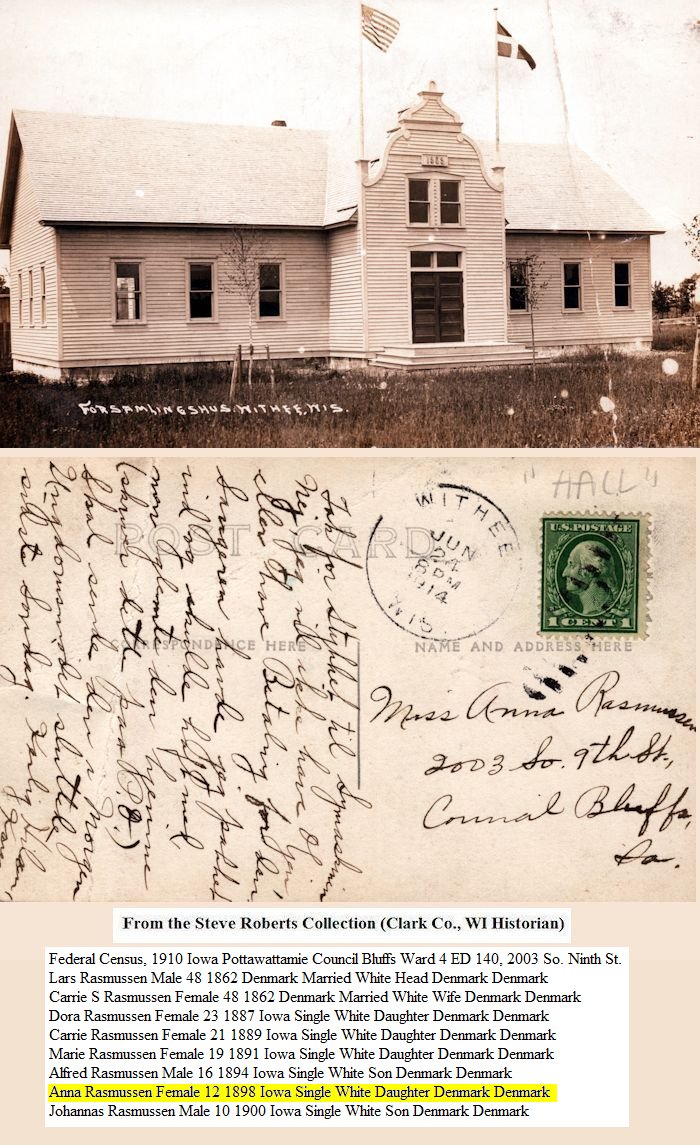 FORSAMLINGSHUS. WITHEE, WIS.
"HALL"
POST CARD
CORRESPONDENCE HERE
NAME AND ADDRESS HERE
WITHEE
JUN
24
8 PM
1914
WIS.
U.S. POSTAGE
1 CENT 1
Tak for Stykket til
jeg vil ikke have
eller have Betaling for den
havde jeg pakket
ind og skulde haft med
men glemt den hjemme
dette paa P.O.)
Skal sende den i Morgen
Ungdomsmødet sluttede
sidste Søndag. Kærlig Hilsen,
Miss Anna Rasmussen
2003 So. 9th St.,
Council Bluffs,
Ia.
From the Steve Roberts Collection (Clark Co., WI Historian)
Federal Census, 1910 Iowa Pottawattamie Council Bluffs Ward 4 ED 140, 2003 So. Ninth St.
Lars Rasmussen Male 48 1862 Denmark Married White Head Denmark Denmark
Carrie S Rasmussen Female 48 1862 Denmark Married White Wife Denmark Denmark
Dora Rasmussen Female 23 1887 Iowa Single White Daughter Denmark Denmark
Carrie Rasmussen Female 21 1889 Iowa Single White Daughter Denmark Denmark
Marie Rasmussen Female 19 1891 Iowa Single White Daughter Denmark Denmark
Alfred Rasmussen Male 16 1894 Iowa Single White Son Denmark Denmark
Anna Rasmussen Female 12 1898 Iowa Single White Daughter Denmark Denmark
Johannas Rasmussen Male 10 1900 Iowa Single White Son Denmark Denmark